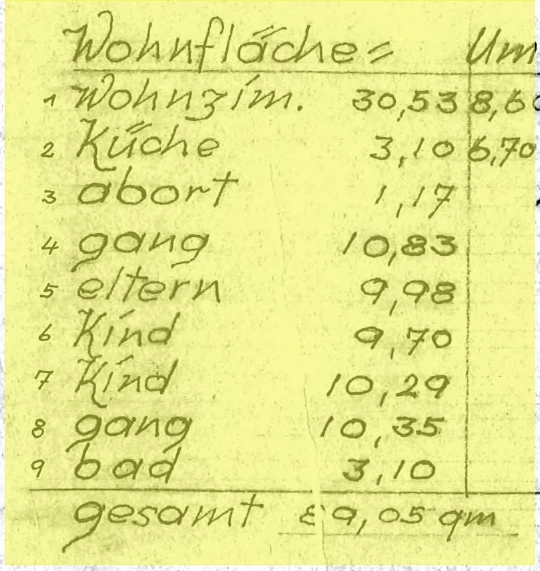 Wohnfläche= Um
1 Wohnzim. 30,53 8,60
2 Küche 3,10 6,70
3 abort 1,17
4 gang 10,83
5 eltern 9,98
6 Kind 9,70
7 Kind 10,29
8 gang 10,35
9 bad 3,10
gesamt 89,05 qm